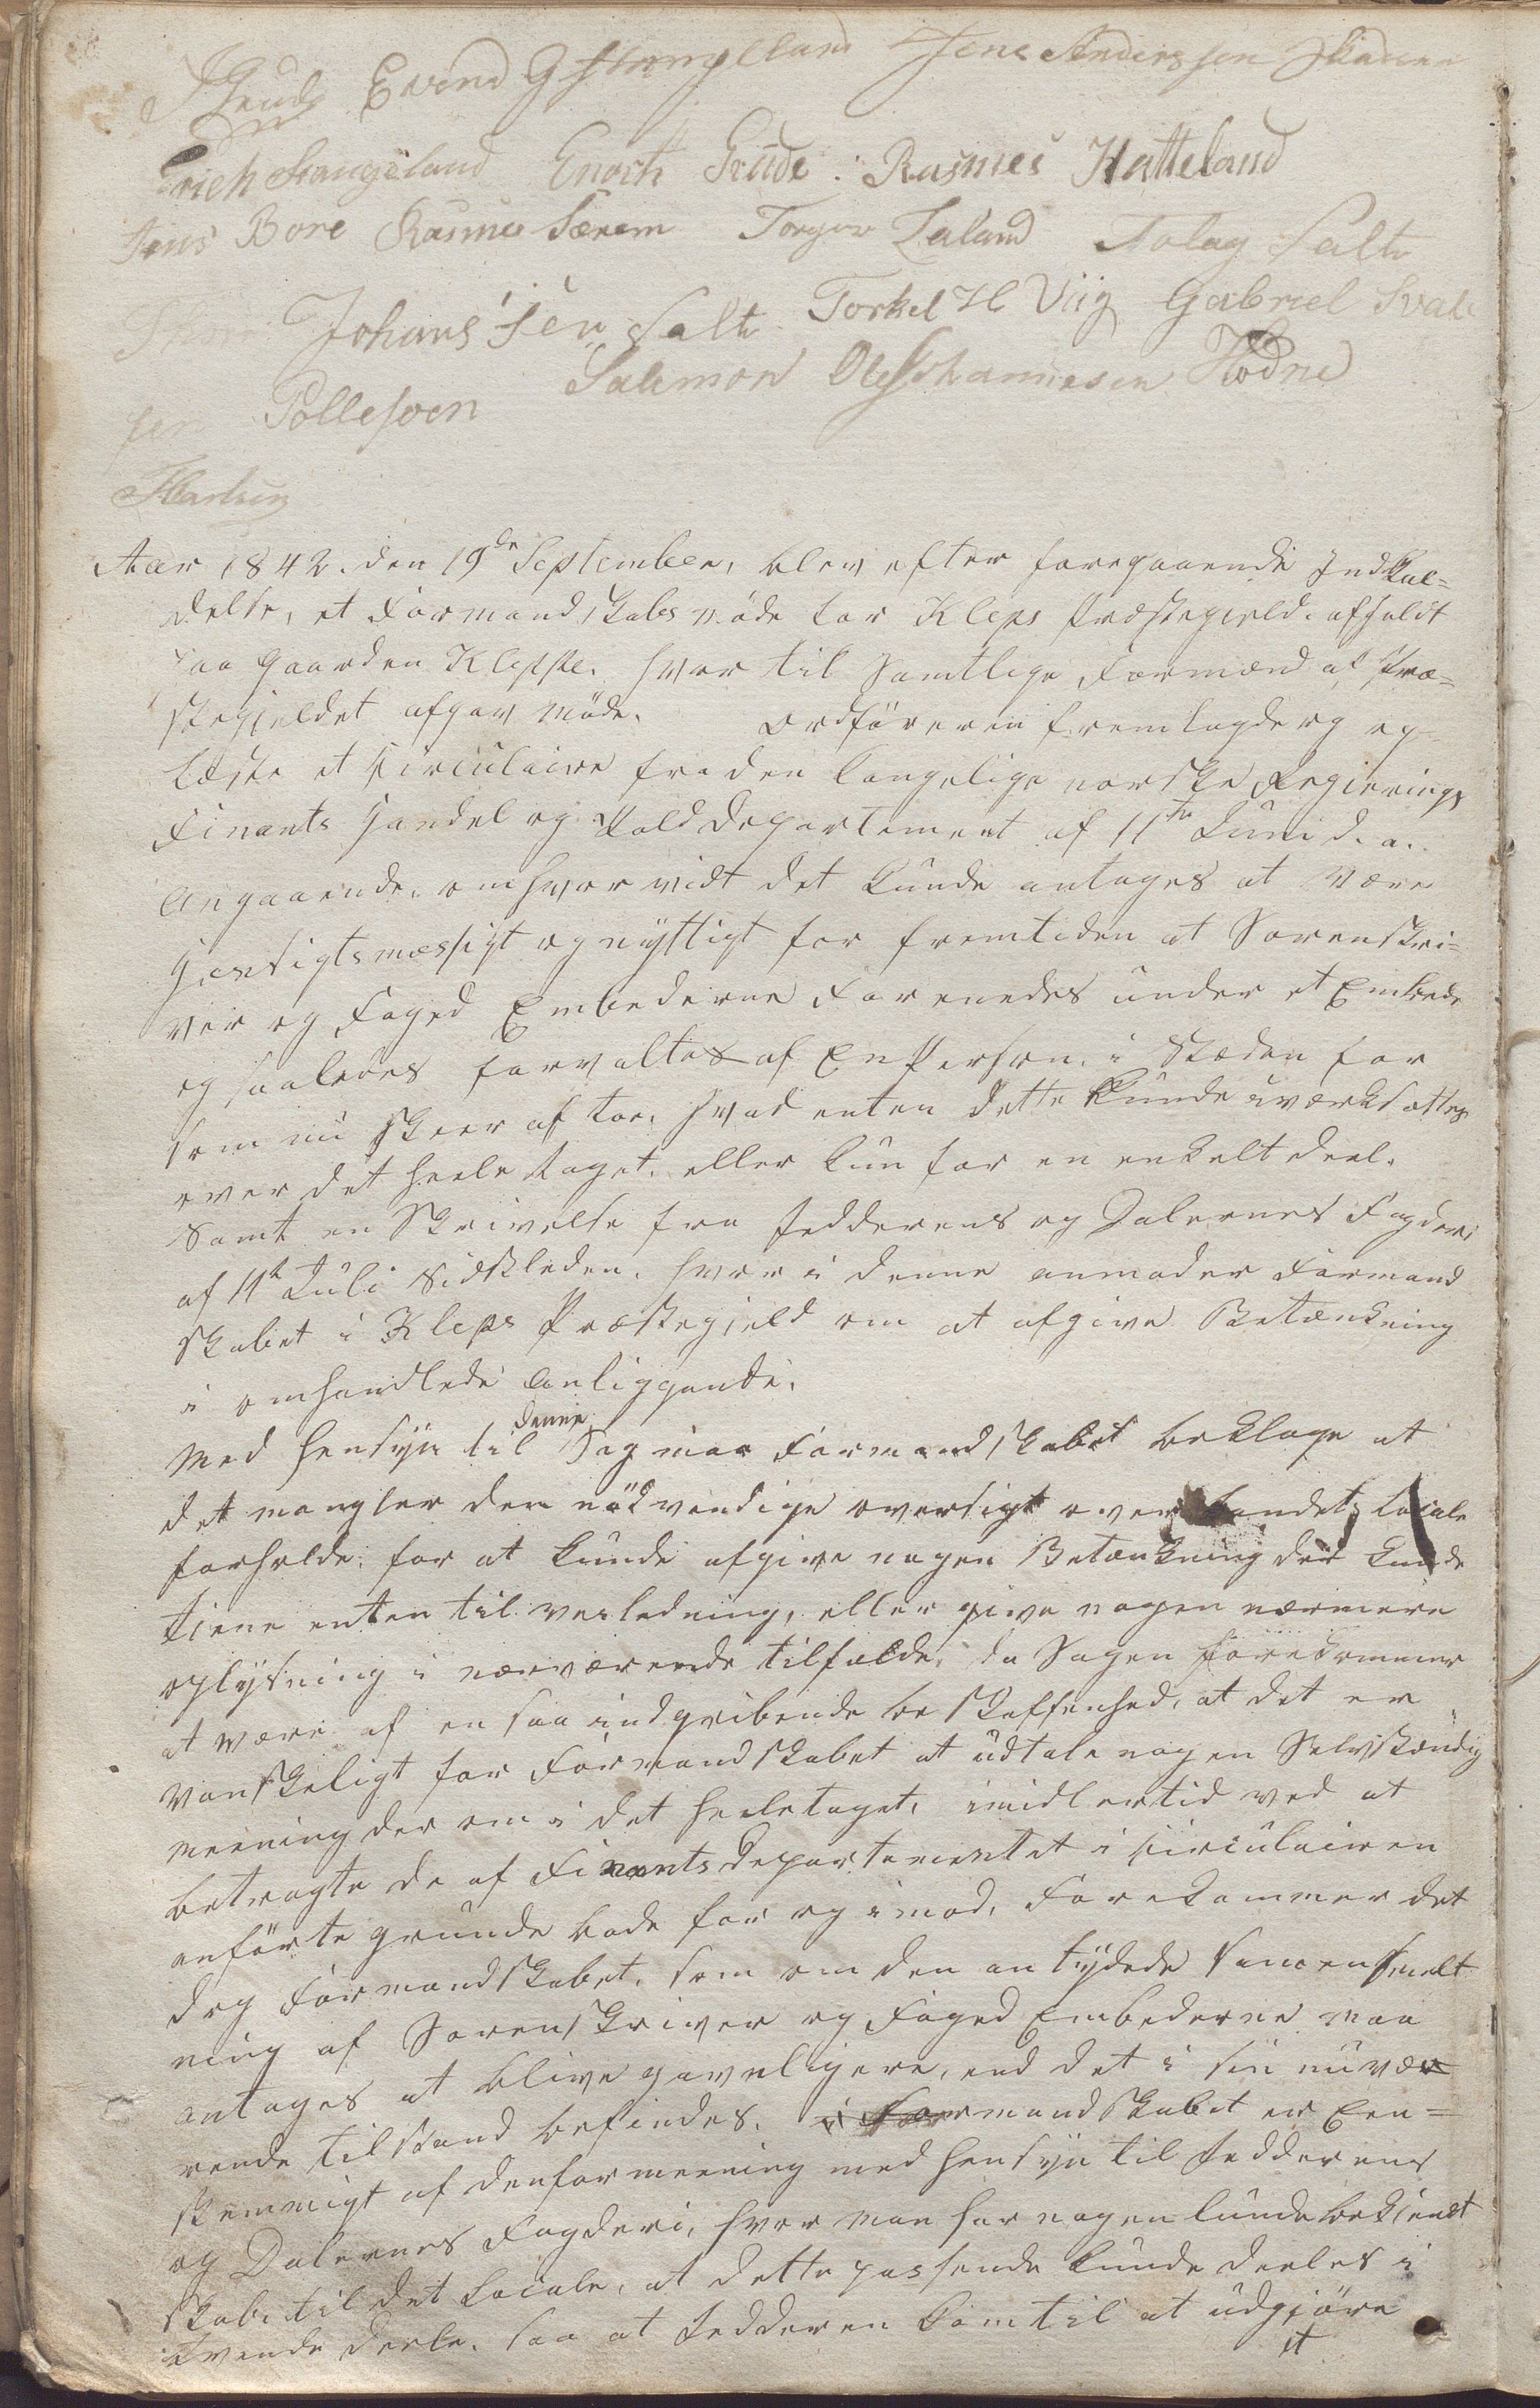 Evind G Stangeland Jens Andersen
Erich Stangeland Enoch Grude: Rasmus Hatteland
Jens Bore Rasmus Særem Torger Laland Tolag Salte
Johans sen Salte Torkel H Viig Gabriel Svale
sen Pollesven Salemon Ole Johannesen Hodne
Aar 1842. den 19de September, blev efter foregaaende Indkal-
delse, et Formandskabs møde for Kleps Præstegield. afholdt
paa Gaarden Kleppe. hvor til Samtlige Formænd af Præ-
stegjeldet afgav møde. Ordföreren fremlagde og op-
læste et Circulaire fra den kongelige norske Regierings
Finants Handel og Told Departement af 11te Juni d. a.
angaaende. om hvor vidt det kunde antages at være
Hensigtsmæssigt og nyttigt for fremtiden at Sorenskri-
ver og Foged Embederne Forenedes under et Embede
og saaledes forvaltes af En Person. i Stæden for
som nu skeer af toe. hvad enten dette kunde iværksættes
over det heele taget. eller kun for en enkelt deel.
Samt en Skrivelse fra Jedderens og Dalernes Fogderi
af 11te Juli Sidstleden. hvor i denne anmoder Formand
skabet i Kleps Præstegield om at afgive Betænkning
i omhandlede Anliggende.
Med hensyn til denne Sag maa Formandskabet beklage at
det mangler den nödvendige oversigt over Landets locale
forholde. for at kunde afgive nogen Betænkning der kunde
tiene enten til veiledning, eller give nogen nærmere
oplysning i nærværende tilfælde. da Sagen forekommer
at være af en saa indgribende beskaffenhed. at det er
vanskeligt for Formandskabet at udtale nogen Selvstændig
meening der om i det heeletaget. imidlertid ved at
betragte de af Finants Departementet i Circulairen
anförte grunde bode for og imod, Forekommer det
dog Formandskabet. som om den antydede Sammensmelt
ning af Sorenskriver og Foged Embederne maa
antages at blive gavnligere, end det i sin nuvæ-
rende tilstand befindes. i Formandskabet er Een-
stemmigt af den formeening med hensyn til Jedderens
og Dalernes Fogderi, hvor man har nogenlunde bekiendt
skab til det locale, at dette passende kunde deeles i
tvende deele. saa at Jedderen kom til at udgjöre
et